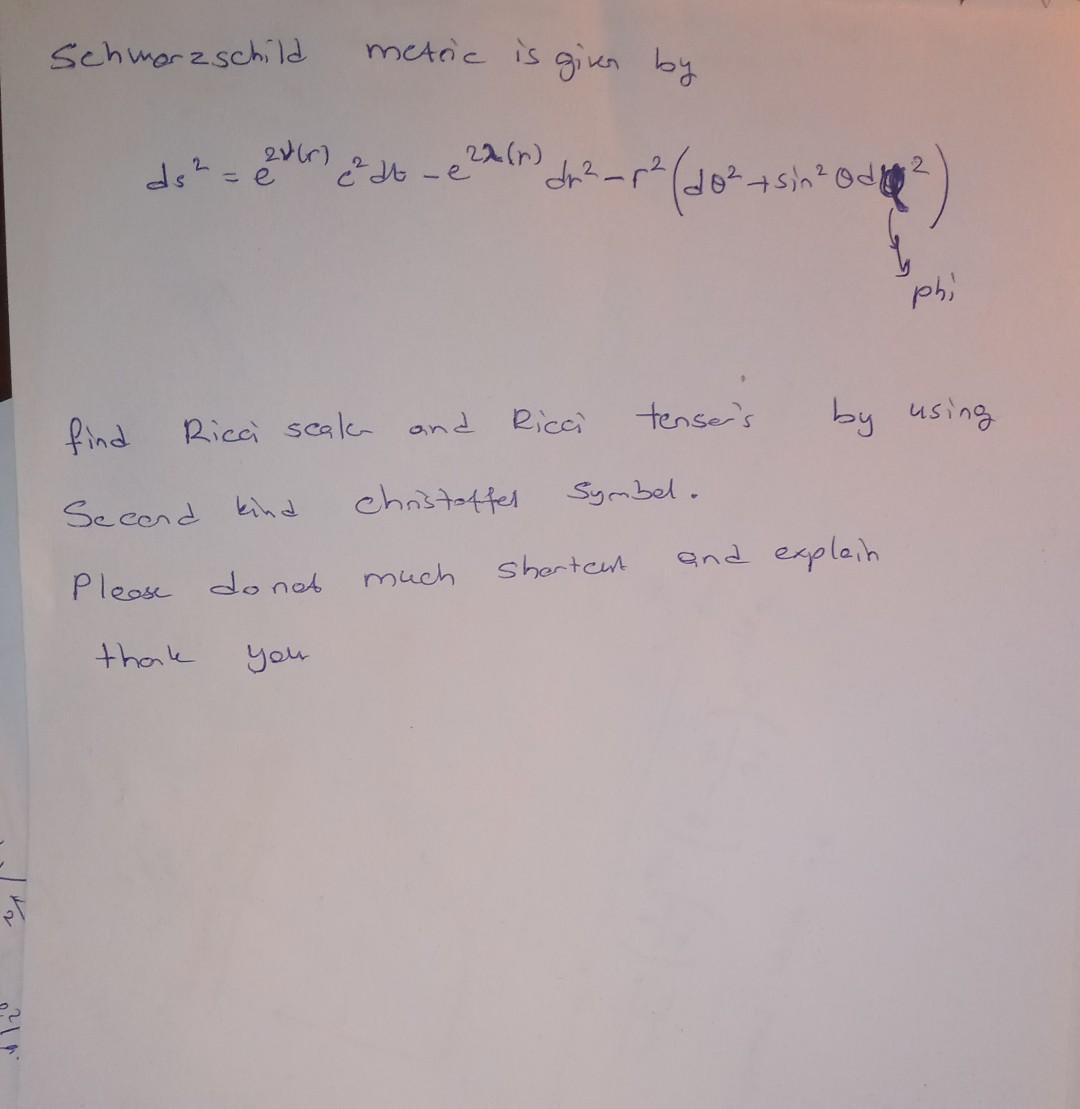 Schwarzschild metric is given by
ds² = e^{2ν(r)} c² dt - e^{2λ(r)} dr² - r² (dθ² + sin² θ dφ²)
phi
find Ricci scaler and Ricci tensor's by using
Second kind christoffel symbol.
Please do not much shortcut and explain
thank you